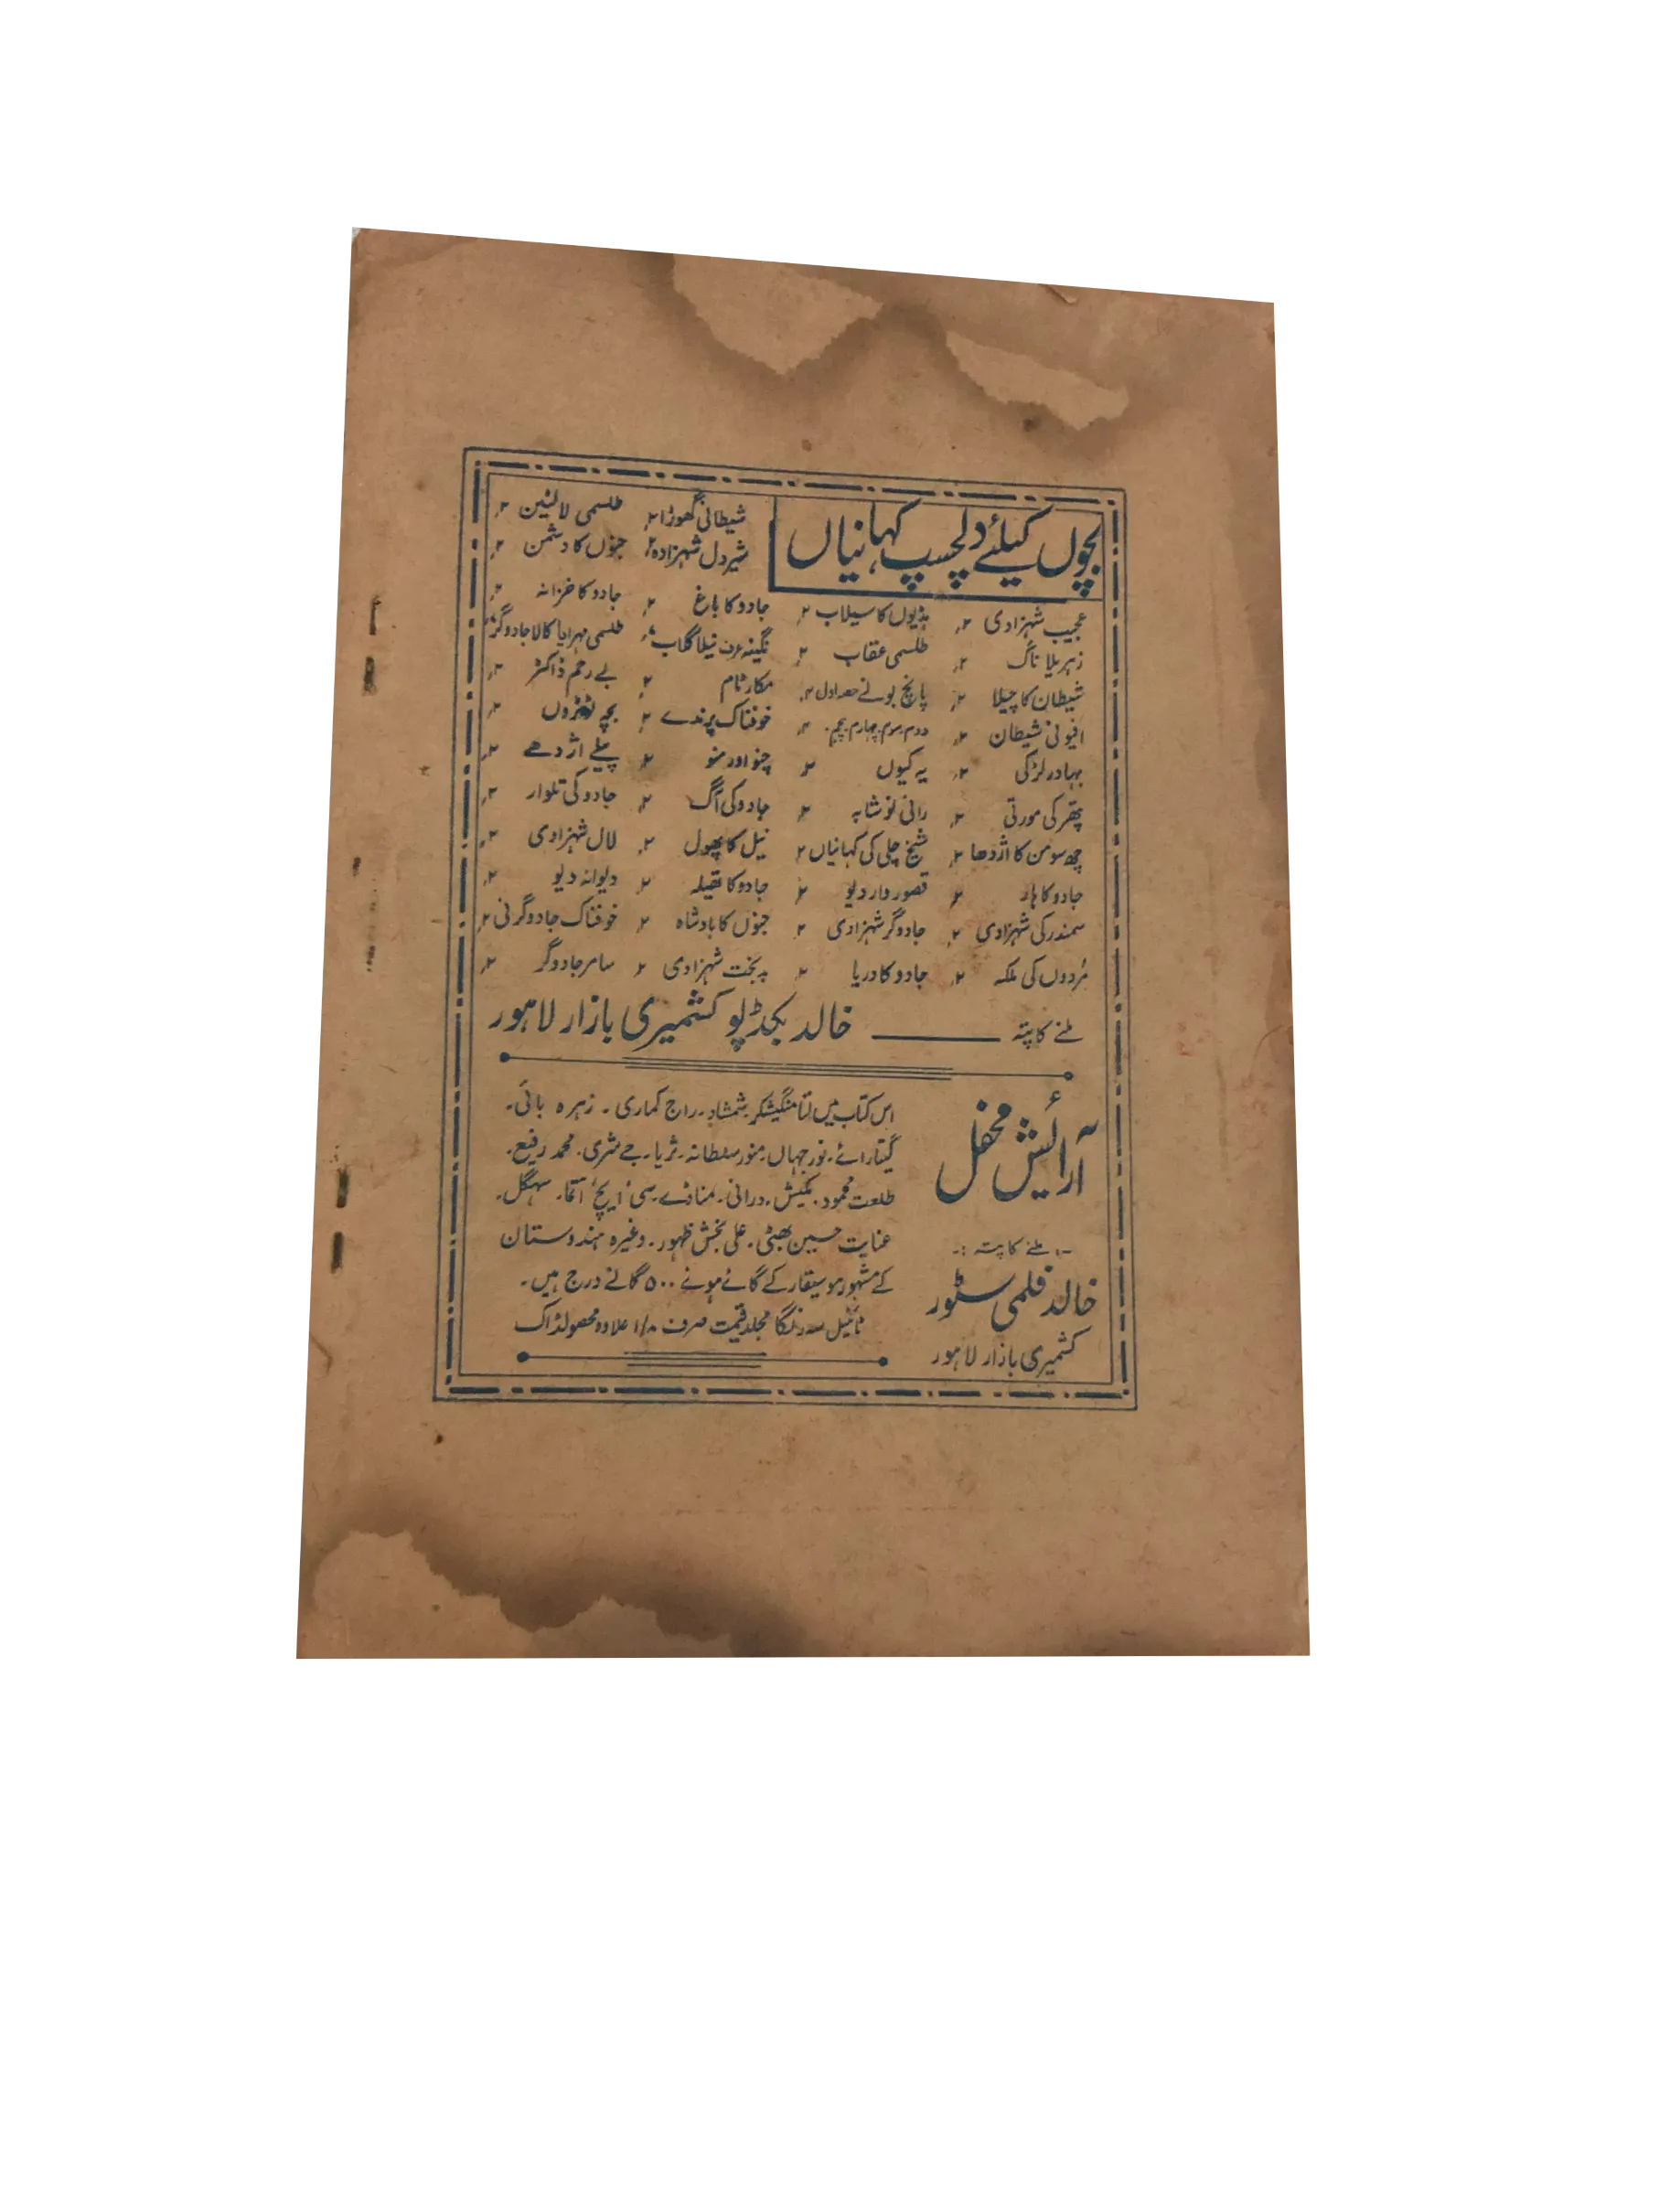 بچوں کیلئے دلچسپ کہانیاں
شیطانی گھوڑا ۲؍ طلسمی لالٹین ۲؍
شیر دل شہزادہ ۲؍ جنوں کا دشمن ۲؍
عجیب شہزادی ۲؍ ہڈیوں کا سیلاب ۲؍ جادو کا باغ ۲؍ جادو کا خزانہ ۲؍
زہریلا ناگ ۲؍ طلسمی عقاب ۲؍ نگینہ عرف نیلا گلاب ۲؍ طلسمی مہرا یا کالا جادوگر ۲؍
شیطان کا چیلا ۲؍ پانچ بونے حصہ اول ۲؍ مکار ٹام ۲؍ بے رحم ڈاکٹر ۲؍
افیونی شیطان ۲؍ دوم۔سوم۔چہارم۔پنجم۔ ۲؍ خوفناک پرندے ۲؍ بچہ
بہادر لڑکی ۲؍ یہ کیوں ۲؍ چنو اور منو ۲؍ پیلے اژدھے ۲؍
پتھر کی مورتی ۲؍ رانی نوشابہ ۲؍ جادو کی آگ ۲؍ جادو کی تلوار ۲؍
چھ سو من کا اژدھا ۲؍ شیخ چلی کی کہانیاں ۲؍ نیل کا پھول ۲؍ لال شہزادی ۲؍
جادو کا ہار ۲؍ قصور وار دیو ۲؍ جادو کا تھیلہ ۲؍ دیوانہ دیو ۲؍
سمندر کی شہزادی ۲؍ جادوگر شہزادی ۲؍ جنوں کا بادشاہ ۲؍ خوفناک جادوگرنی ۲؍
مُردوں کی ملکہ ۲؍ جادو کا دریا ۲؍ بدبخت شہزادی ۲؍ سامر جادوگر ۲؍
ملنے کا پتہ ــــــــ خالد بکڈپو کشمیری بازار لاہور
آرائش محفل
-: ملنے کا پتہ :-
خالد فلمی سٹور
کشمیری بازار لاہور
اس کتاب میں لتا منگیشکر۔شمشاد۔راج کماری۔ زہرہ بائی۔
گیتا رائے۔نور جہاں۔منور سلطانہ۔ثریا۔جے شری۔محمد رفیع۔
طلعت محمود۔مکیش۔درانی۔مناڈے۔سی ایچ آتما۔ سہگل۔
عنایت حسین بھٹی۔علی بخش ظہور۔وغیرہ ہندوستان
کے مشہور موسیقار کے گائے ہوئے ۵۰۰ گانے درج ہیں۔
ٹائیٹل سہ رنگا مجلد قیمت صرف ۱/۸ علاوہ محصولڈاک